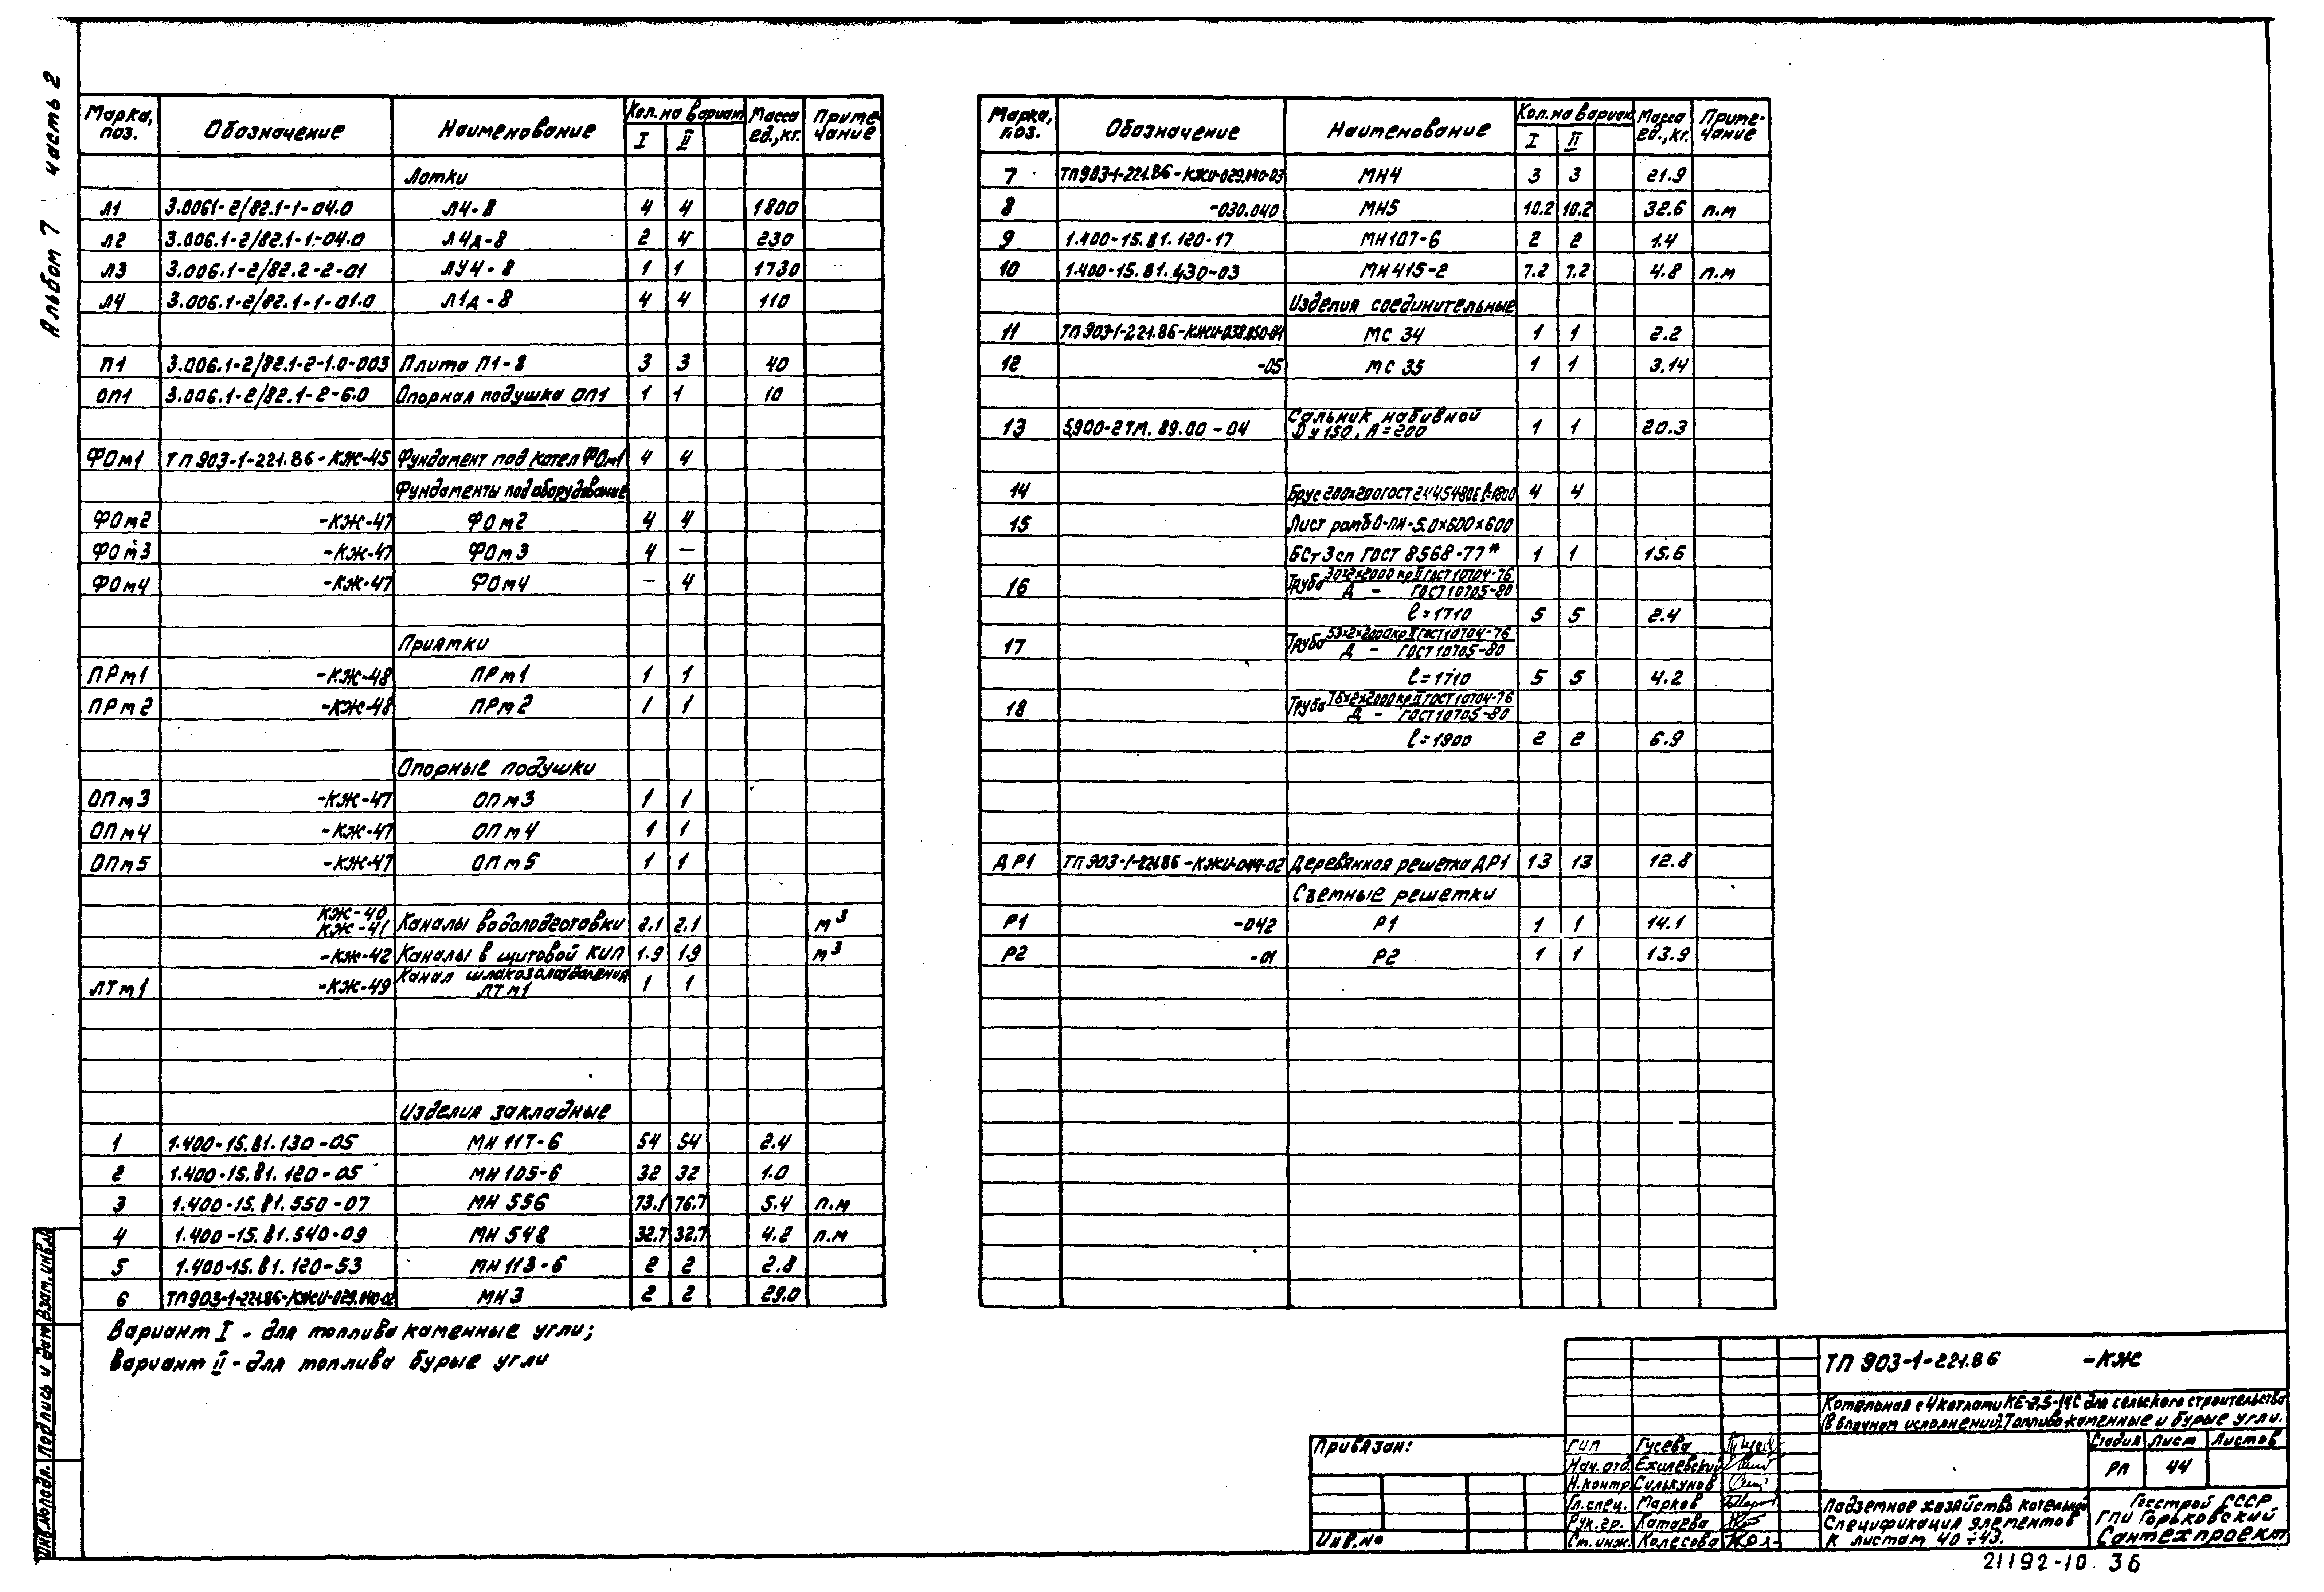 Альбом 7 часть 2
Марка, поз. Обозначение Наименование Кол. на вариант I II Масса ед., кг. Примечание
Лотки
Л1 3.0061-2/82.1-1-04.0 Л4-8 4 4 1800
Л2 3.006.1-2/82.1-1-04.0 Л4д-8 2 4 230
Л3 3.006.1-2/82.2-2-01 ЛУ4-8 1 1 1730
Л4 3.006.1-2/82.1-1-01.0 Л1д-8 4 4 110
П1 3.006.1-2/82.1-2-1.0-003 Плита П1-8 3 3 40
ОП1 3.006.1-2/82.1-2-6.0 Опорная подушка ОП1 1 1 10
ФОм1 ТП 903-1-221.86-КЖ-45 Фундамент под котел ФОм1 4 4
Фундаменты под оборудование
ФОм2 -КЖ-47 ФОм2 4 4
ФОм3 -КЖ-47 ФОм3 4 —
ФОм4 -КЖ-47 ФОм4 — 4
Приямки
ПРм1 -КЖ-48 ПРм1 1 1
ПРм2 -КЖ-48 ПРм2 1 1
Опорные подушки
ОПм3 -КЖ-47 ОПм3 1 1
ОПм4 -КЖ-47 ОПм4 1 1
ОПм5 -КЖ-47 ОПм5 1 1
КЖ-40
КЖ-41 Каналы водоподготовки 2.1 2.1 м³
-КЖ-42 Каналы в щитовой КИП 1.9 1.9 м³
ЛТм1 -КЖ-49 Канал шлакозолоудаления ЛТм1 1 1
Изделия закладные
1 1.400-15.В1.130-05 МН 117-6 54 54 2.4
2 1.400-15.В1.120-05 МН 105-6 32 32 1.0
3 1.400-15.В1.550-07 МН 556 73.1 76.7 5.4 п.м
4 1.400-15.В1.540-09 МН 548 32.7 32.7 4.2 п.м
5 1.400-15.В1.120-53 МН 113-6 2 2 2.8
6 ТП 903-1-221.86-КЖИ-029.040-02 МН3 2 2 29.0
Вариант I - для топлива каменные угли;
Вариант II - для топлива бурые угли
Марка, поз. Обозначение Наименование Кол. на вариант I II Масса ед., кг. Примечание
7 ТП 903-1-221.86-КЖИ-029.040-03 МН4 3 3 21.9
8 -030.040 МН5 10.2 10.2 32.6 п.м
9 1.400-15.В1.120-17 МН107-6 2 2 1.4
10 1.400-15.В1.430-03 МН415-2 7.2 7.2 4.8 п.м
Изделия соединительные
11 ТП 903-1-221.86-КЖИ-038.050-04 МС 34 1 1 2.2
12 -05 МС 35 1 1 3.14
Сальник набивной
13 5.900-2 ТМ.89.00-04 Dу150, А=200 1 1 20.3
14 Брус 200х200 ГОСТ 24454-80Е ℓ=1800 4 4
15 Лист ромб О-ПН-5.0х600х600
БСт3сп ГОСТ 8568-77* 1 1 15.6
16 Труба 30х2х2000 кр II ГОСТ 10704-76 / Д - ГОСТ 10705-80
ℓ=1710 5 5 2.4
17 Труба 53х2х2000 кр II ГОСТ 10704-76 / Д - ГОСТ 10705-80
ℓ=1710 5 5 4.2
18 Труба 76х2х2000 кр II ГОСТ 10704-76 / Д - ГОСТ 10705-80
ℓ=1900 2 2 6.9
ДР1 ТП 903-1-221.86-КЖИ-044-02 Деревянная решетка ДР1 13 13 12.8
Съемные решетки
Р1 -042 Р1 1 1 14.1
Р2 -01 Р2 1 1 13.9
ТП 903-1-221.86 -КЖ
Котельная с 4 котлами КЕ-2,5-14С для сельского строительства
(в блочном исполнении). Топливо-каменные и бурые угли.
Стадия Лист Листов
РП 44
Подземное хозяйство котельной
Спецификация элементов
к листам 40÷43.
Госстрой СССР
ГПИ Горьковский
Сантехпроект
Привязан:
Инв.№
ГИП Гусева
Нач. отд. Ехилевский
Н.контр Силькунов
Гл.спец. Марков
Рук.гр. Катаева
Ст.инж. Колесова
Инв.№ подл. Подпись и дата Взам.инв.№
21192-10 36